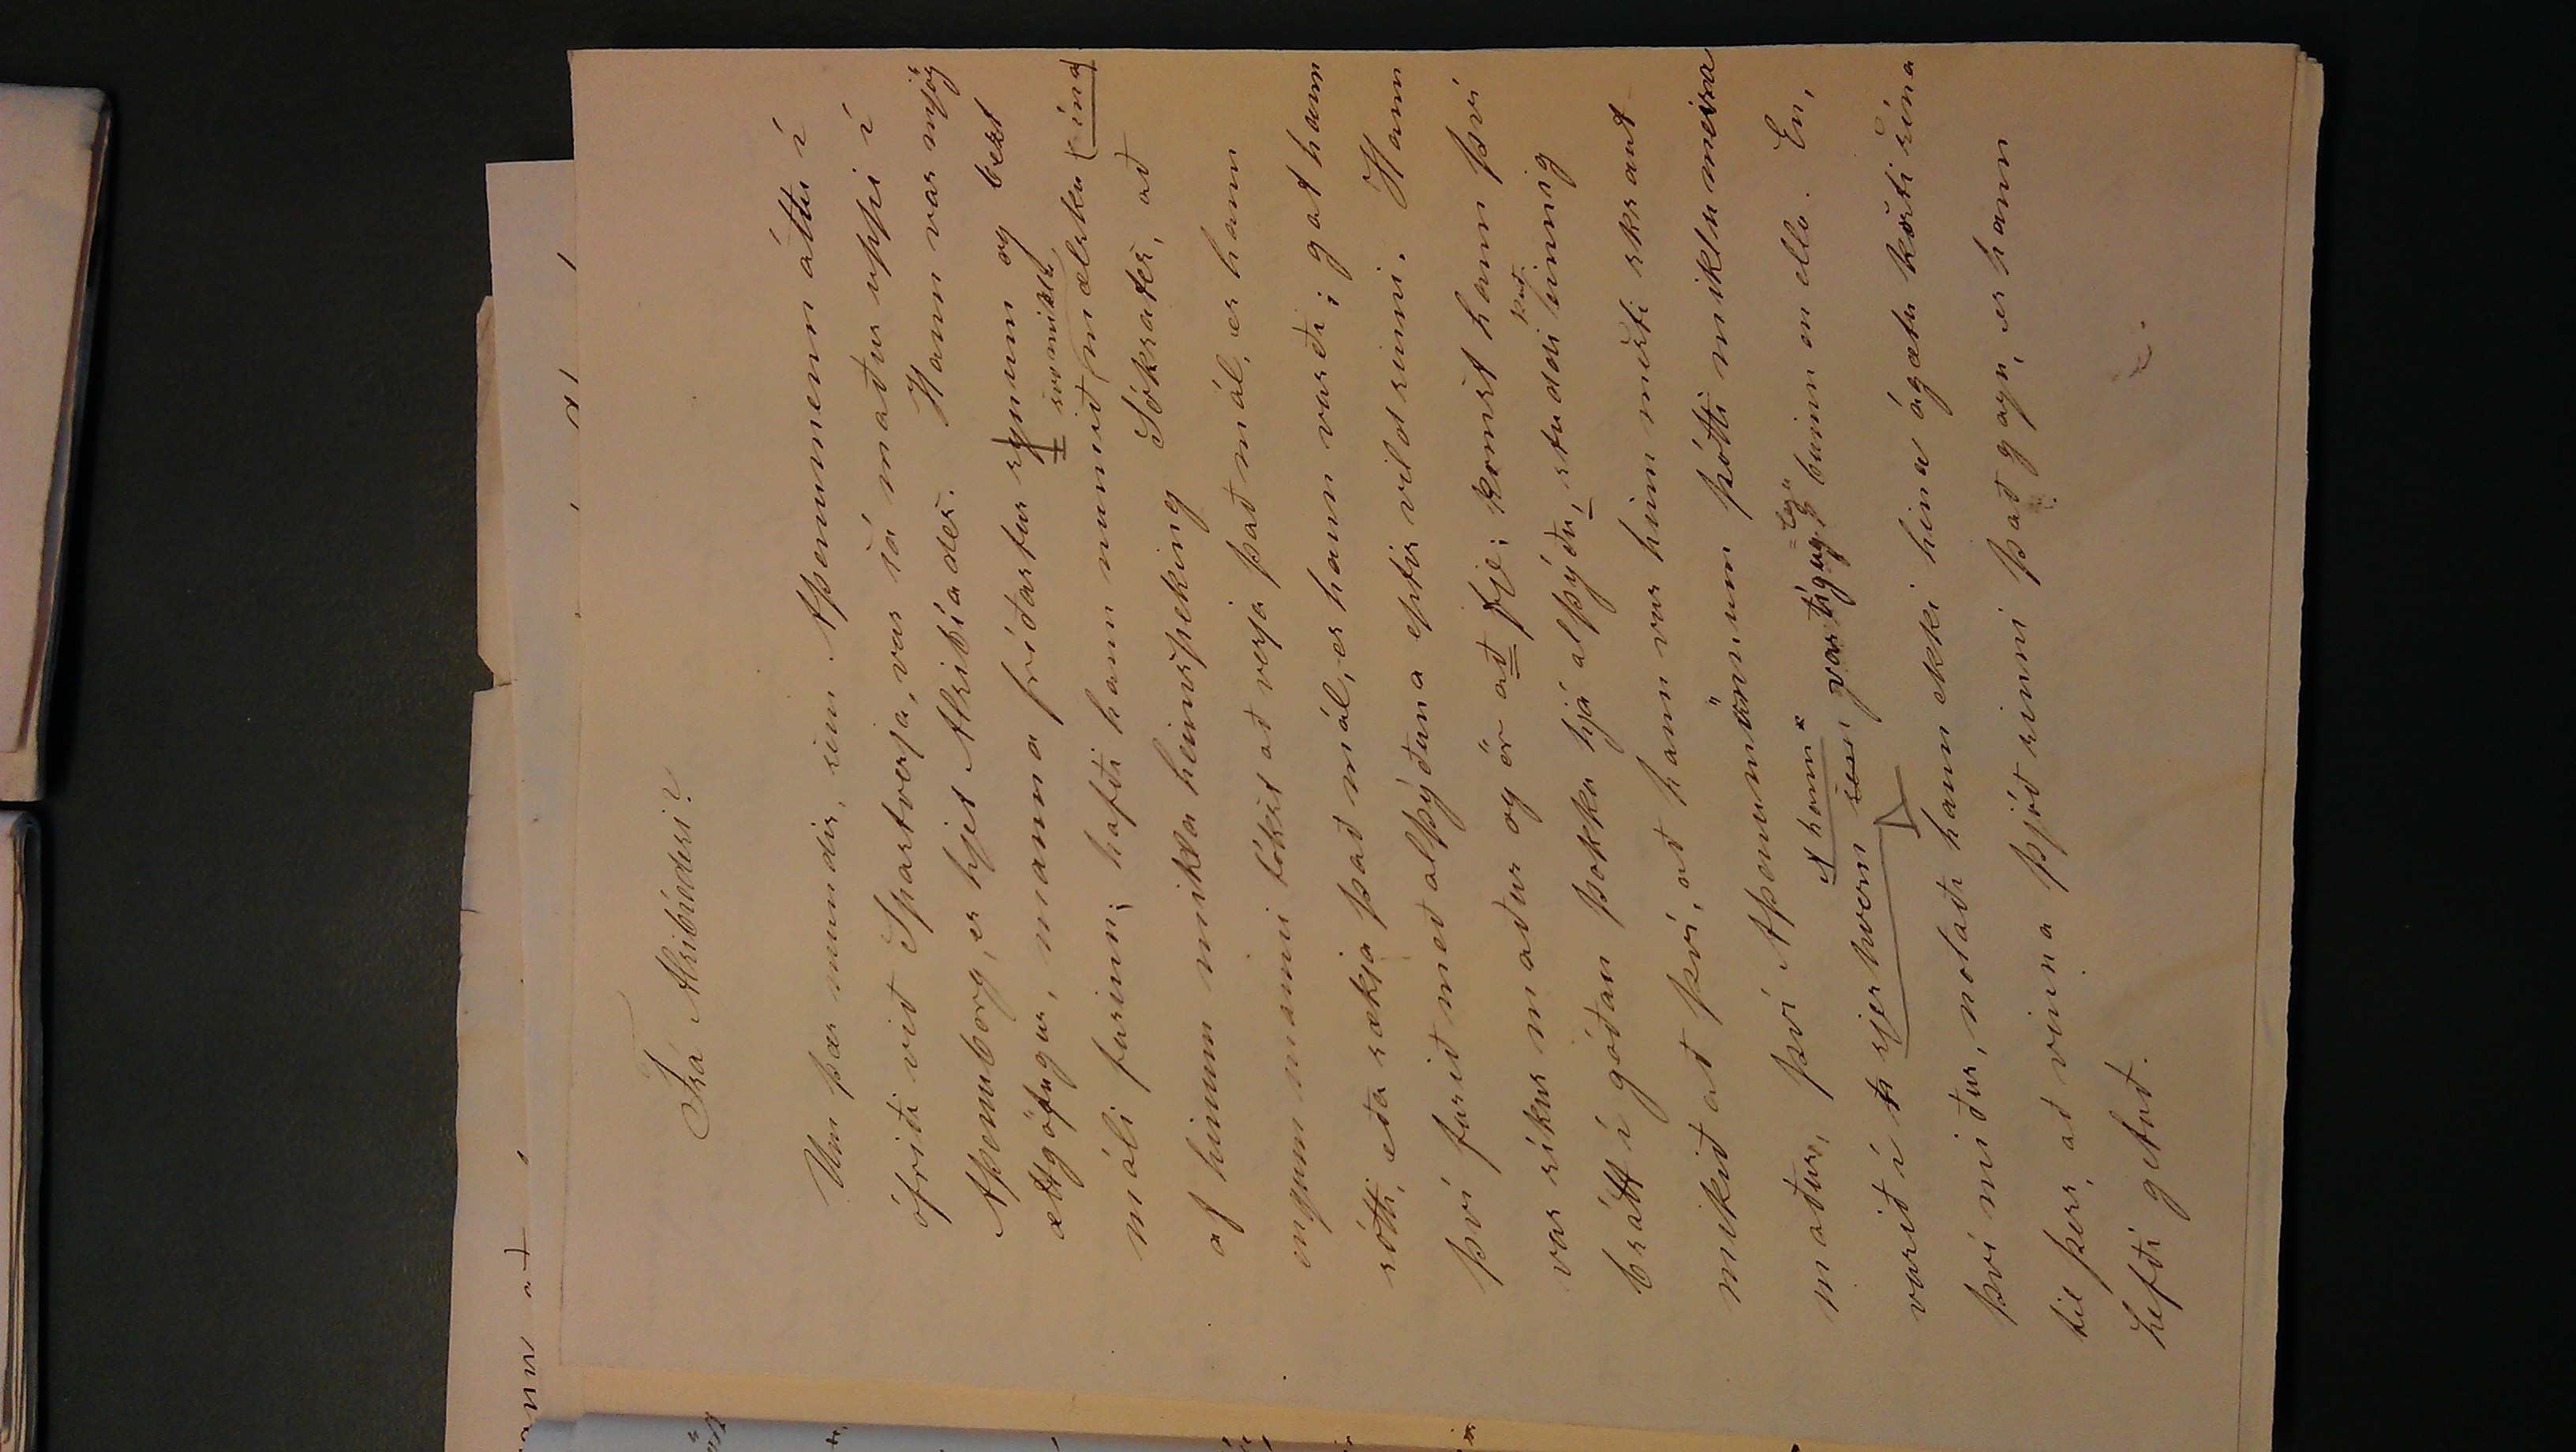 Frá Alkibíadesi?
Um þær mundir, sem Aþenumenn áttu í
ófriði við Spartverja, var sá maður uppi í
Aþenuborg, er hjet Alkibíades. Hann var mjög
ættgöfugur, manna fríðastur sýnum og bezt
svo mikla
máli farinn; hafði hann numið mælsku sína
af hinum mikla heimspeking Sókrates, að
engum manni tókst að verja það mál, er hann
sótti, eða sækja það mál, er hann varði; gat hann
því farið með alþýðuna eptir vild sinni. Hann
var ríkur maður og ör að fje; komst hann því
brátt í góðan þokka hjá alþýðu, studdi hinnig
það
mikið að því, að hann var hinn mesti skraut-
maður, því Aþenumönnum þótti miklu meira
at hann
leg
varið í sjerhvern sem var tíguglega búinn en ella. En,
því miður, notaði hann ekki hina ágætu kosti sína
til þess, að vinna þjóð sinni það gagn, er hann
hefði getað.